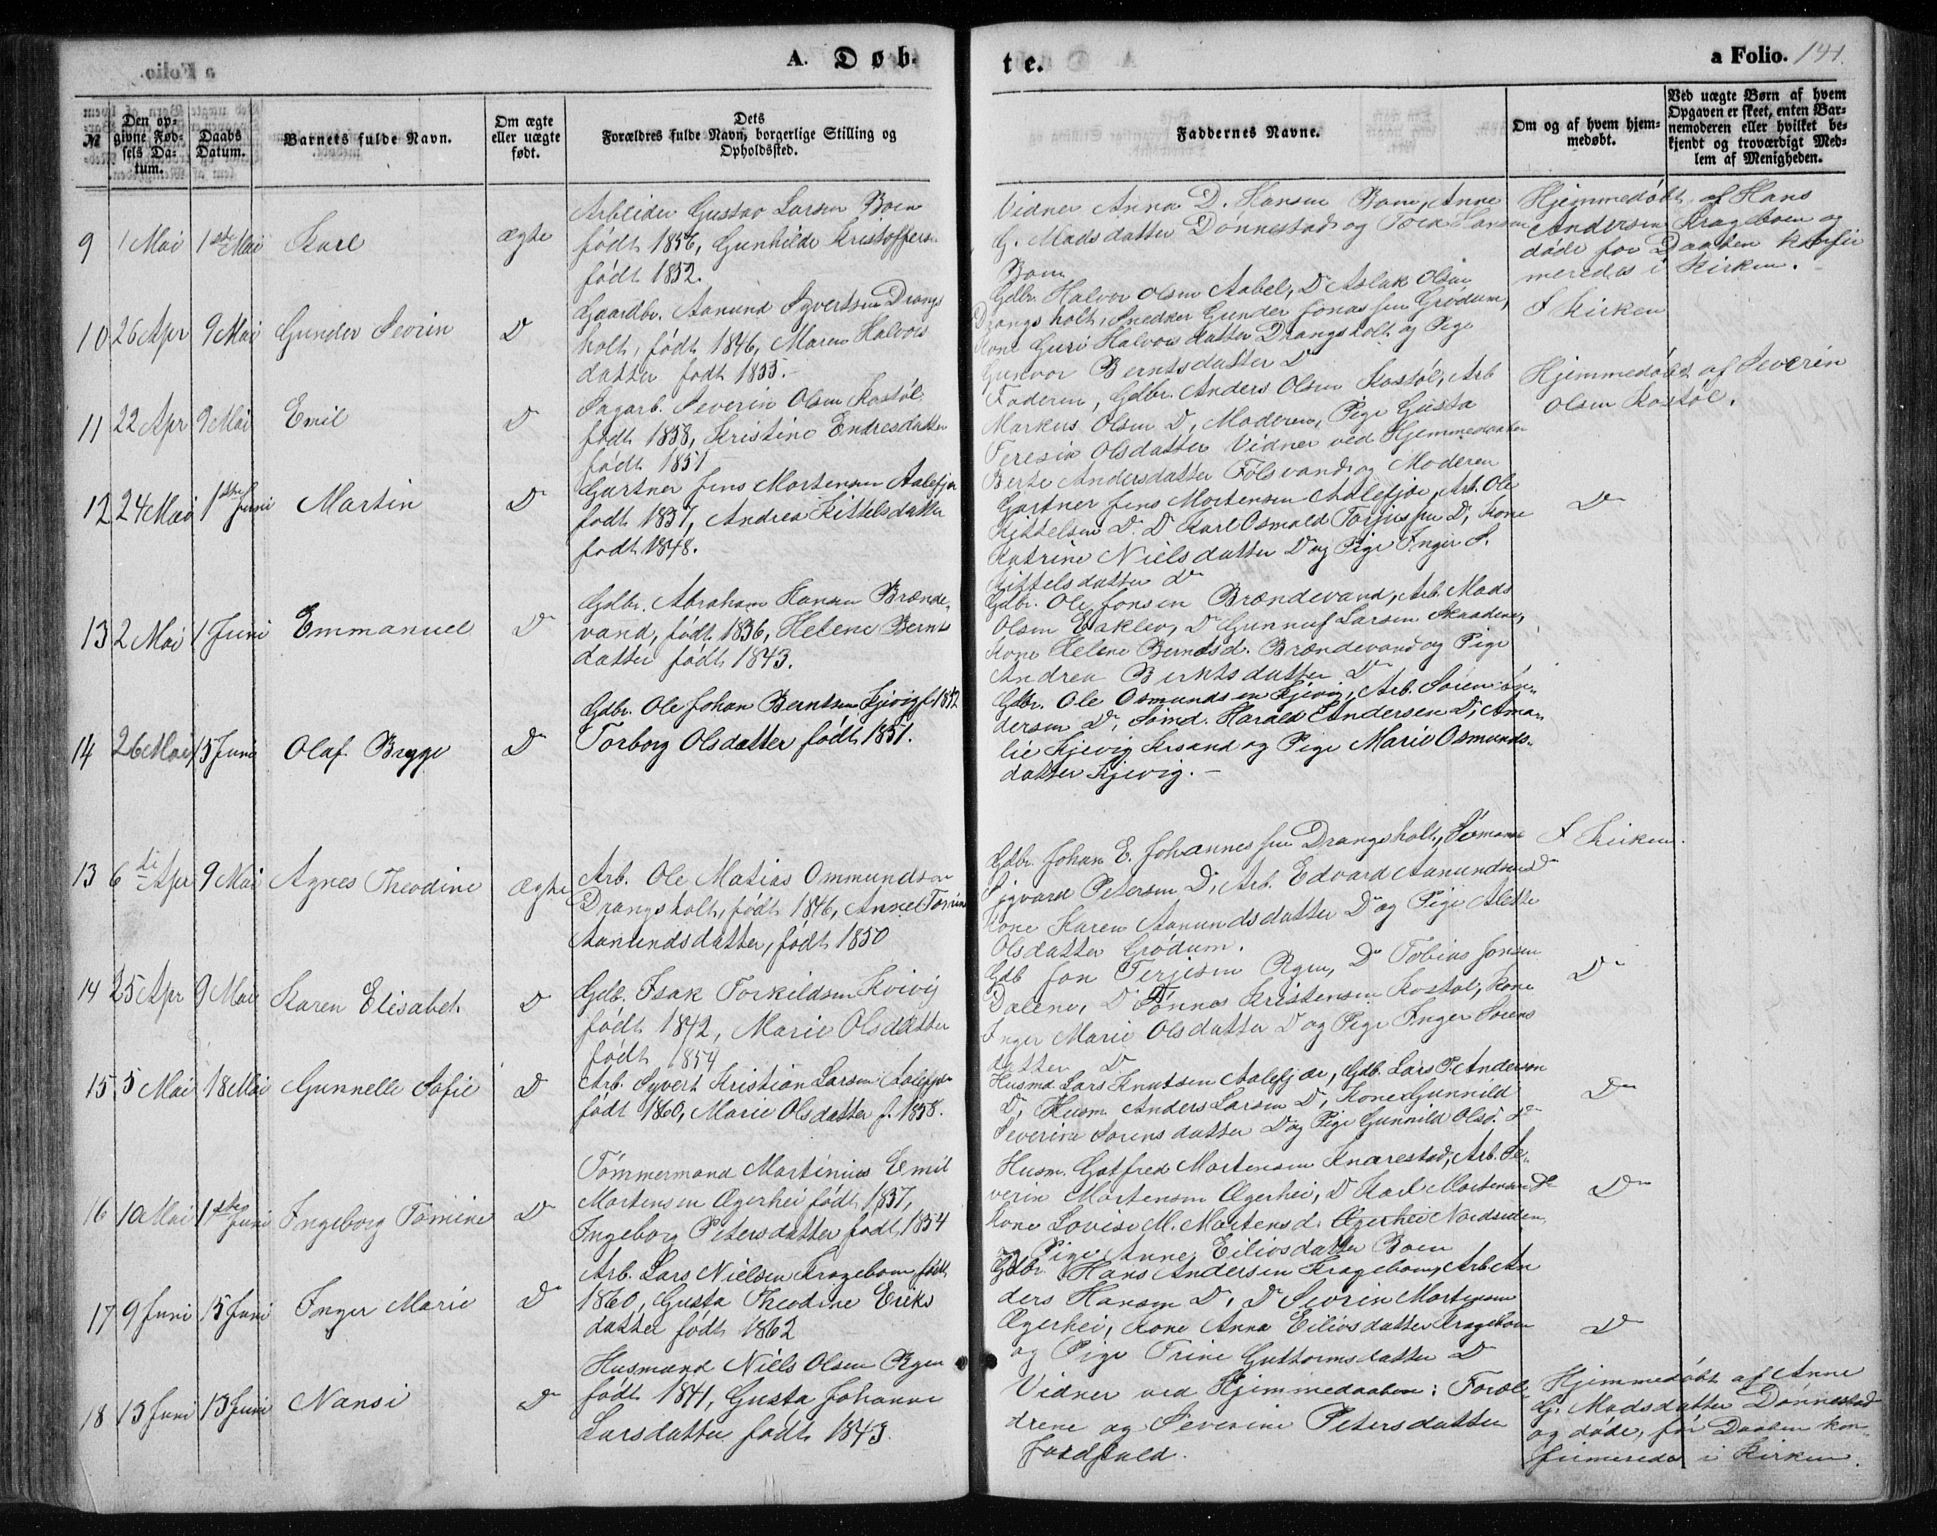 A. Døb-
te.
a Folio. 141.
№
Den op-
givne Fød-
sels Da-
tum.
Daabs
Datum.
Barnets fulde Navn.
Om ægte
eller uægte
født.
Dets
Forældres fulde Navn, borgerlige Stilling og
Opholdssted.
Faddernes Navne.
Om og af hvem hjem-
medøbt.
Ved uægte Børn af hvem
Opgaven er skeet, enten Bar-
nemoderen eller hvilket be-
kjendt og troværdigt Med-
lem af Menigheden.
9 1 Mai 1ste Mai Karl ægte
Arbeider Gustav Larsen Boen
født 1856, Gunhilde Kristoffers
født 1852.
Vidner Anna D. Hansen Boen, Anne
G. Madsdatter Dønnestad og Tora Hansen
Boen
Hjemmedøbt af Hans
Andersen Krageboen og
døde før Daaben konfir
meredes i Kirken.
10 26 Apr 9 Mai Gunder Sevrin D
Gaardbr. Aanund Syvertsen Drangs
holt, født 1846, Maren Halvors
datter født 1855.
Gdbr. Halvor Olsen Aabel, D Aslak Olsen
Drangsholt, Snedker Gunder Jonassen Grødum,
Kone Guri Halvorsdatter Drangsholt og Pige
Gunvor Berntsdatter D
I Kirken
11 22 Apr 9 Mai Emil D
Sagarb. Severin Olsen Kostøl
født 1858, Kristine Endresdatter
født 1851
Faderen, Gdbr. Anders Olsen Kostøl, Arb
Markus Olsen D, Moderen, Pige Gusta
Teresia Olsdatter Vidner ved Hjemmedaaben
Berte Andersdatter Følsvand og Moderen
Hjemmedøbt af Severin
Olsen Kostøl.
12 24 Mai 1ste Juni Martin D
Gartner Jens Mortensen Aalefjær
født 1837, Andrea Kittelsdatter
født 1848.
Gartner Jens Mortensen Aalefjær, Arb. Ole
Kittelsen D. D Karl Osmald Torjussen D, Kone
Katrine Nielsdatter D og Pige Inger S.
Kittelsdatter D
D
13 2 Mai 1 Juni Emmanuel D
Gdbr. Abraham Hansen Brænde-
vand, født 1836, Helene Bernts
datter født 1843.
Gdbr. Ole Jonsen Brændevand, Arb. Mads
Olsen Eaklev, D Gunnuf Larsen Skaadene,
Kone Helene Berntsd. Brændevand og Pige
Andrea Berntsdatter D
14 26 Mai 15 Juni Olaf Brygge D
Gdbr. Ole Johan Berntsen Kjevig f. 1852
Torborg Olsdatter født 1851.
Gdbr. Ole Osmundsen Kjevig, Arb. Søren An-
dersen D, Sømd. Harald Andersen D, Ama-
lie Kjevig Krsand og Pige Marie Osmunds-
datter Kjevig.
13 6di Apr 9 Mai Agnes Theodine Ægte
Arb. Ole Matias Ommundsen
Drangsholt, født 1846, Anne Tomine
Aanundsdatter, født 1850
Gdbr. Johan E. Johannessen Drangsholt, Sømand
Sigvard Petersen D, Arb. Edvard Aanundsen D
Kone Karen Aanundsdatter D og Pige Alette
Olsdatter Grødum.
I Kirken.
14 25 Apr 9 Mai Karen Elisabet D
Gdb. Isak Torkildsen Kvivig
født 1842, Marie Olsdatter
født 1854
Gdb Jon Terjesen Rgen, D Tobias Jonsen
Dalene, D Tønnes Kristensen Kostøl, Kone
Inger Marie Olsdatter D og Pige Inger Sørens
datter D
D
15 5 Mai 18 Mai Gunnelle Sofie D
Arb. Syvert Kristian Larsen Aalefjær
født 1860, Marie Olsdatter f. 1858.
Husmd Lars Knutsen Aalefjær, Gdb. Lars P. Andersen
D, Husm. Anders Larsen D, Kone Gunnild
Severine Sørensdatter D og Pige Gunnild Olsd. D
D
16 10 Mai 1ste Juni Ingeborg Tomine D
Tømmermand Martinius Emil
Mortensen Ægerhei født 1857,
Ingeborg Petersdatter født 1854
Husm. Gotfred Mortensen Knarestad, Arb. Se-
verin Mortensen Ægerhei, D Karl Mortensen D
Kone Lovise M. Mortensd. Ægerhei Nordsiden
og Pige Anne Eiliosdatter Boen
D
17 9 Juni 15 Juni Inger Marie D
Arb. Lars Nielsen Krageboen født
1860, Gusta Theodine Eriks
datter født 1862
Gdbr Hans Andersen Krageboen, Arb An
ders Hansen D, D Sevrin Mortensen
Ægerhei, Kone Anna Eiliosdatter Krageboen
og Pige Trine Guttormsdatter D
D
18 13 Juni 13 Juni Nansi D
Husmand Niels Olsen Rgen
født 1841, Gusta Johanne
Larsdatter født 1843.
Vidner ved Hjemmedaaben: Foræl-
drene og Severine Petersdatter
Jordfald.
Hjemmedøbt af Anne
G. Madsdatter Dønnestad
og døde, før Daaben kon-
firmeredes i Kirken.